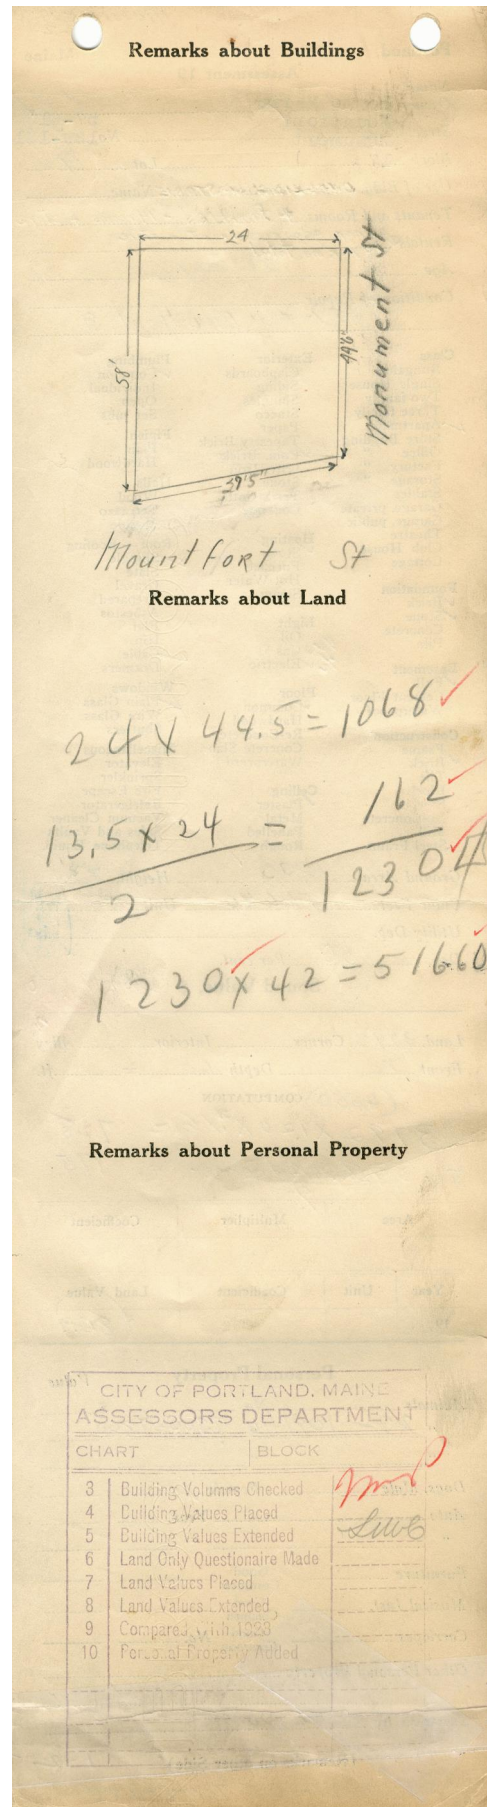 Remarks about Buildings
24
58'
44'6"
Monument St
39'5"
Mountfort St
Remarks about Land
24 x 44.5 = 1068
13.5 x 24 = 162
2 1230
1230 x 42 = 51660
Remarks about Personal Property
CITY OF PORTLAND, MAINE
ASSESSORS DEPARTMENT
CHART BLOCK
3 Building Volumns Checked
4 Building Values Placed
5 Building Values Extended
6 Land Only Questionaire Made
7 Land Values Placed
8 Land Values Extended
9 Compared With 1923
10 Personal Property Added